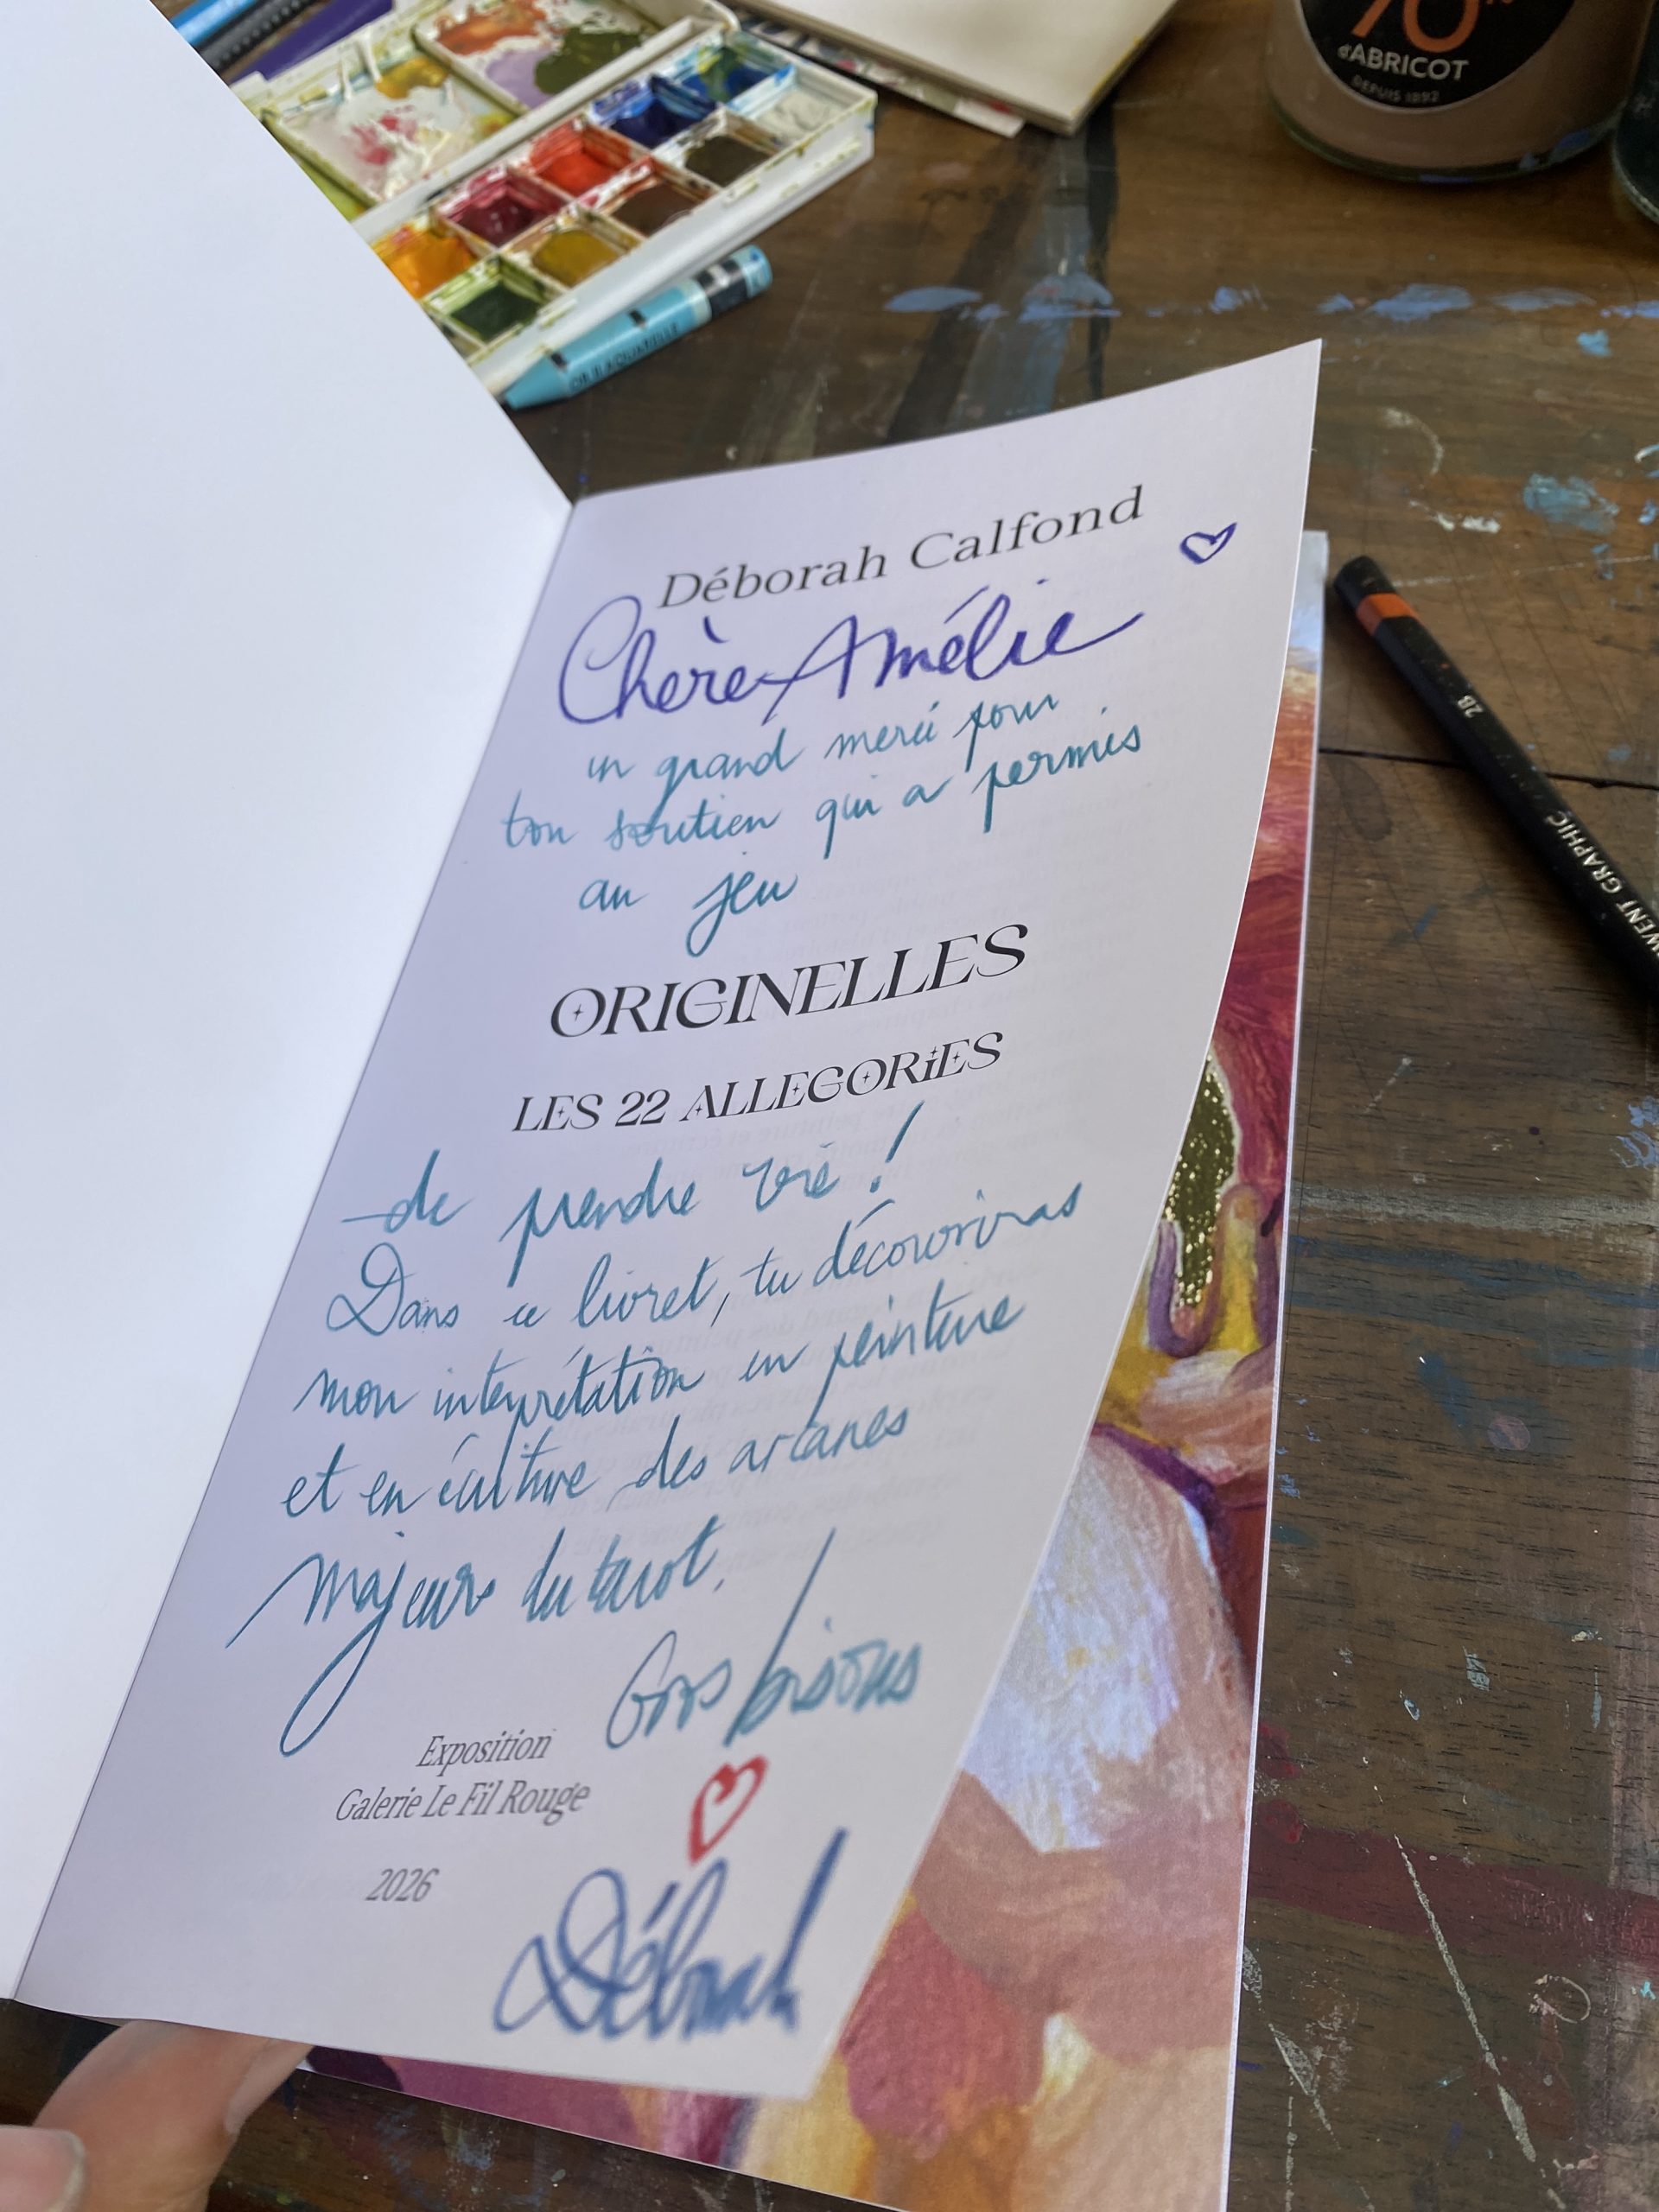 70%
d'ABRICOT
DEPUIS 1892
Déborah Calfond
Chère Amélie
un grand merci pour
ton soutien qui a permis
au jeu
ORIGINELLES
LES 22 ALLEGORiES
de prendre vie !
Dans ce livret, tu découvriras
mon interprétation en peinture
et en écriture des arcanes
majeurs du tarot.
Gros bisous
Exposition
Galerie Le Fil Rouge
2026
Déborah
2B
WENT GRAPHIC